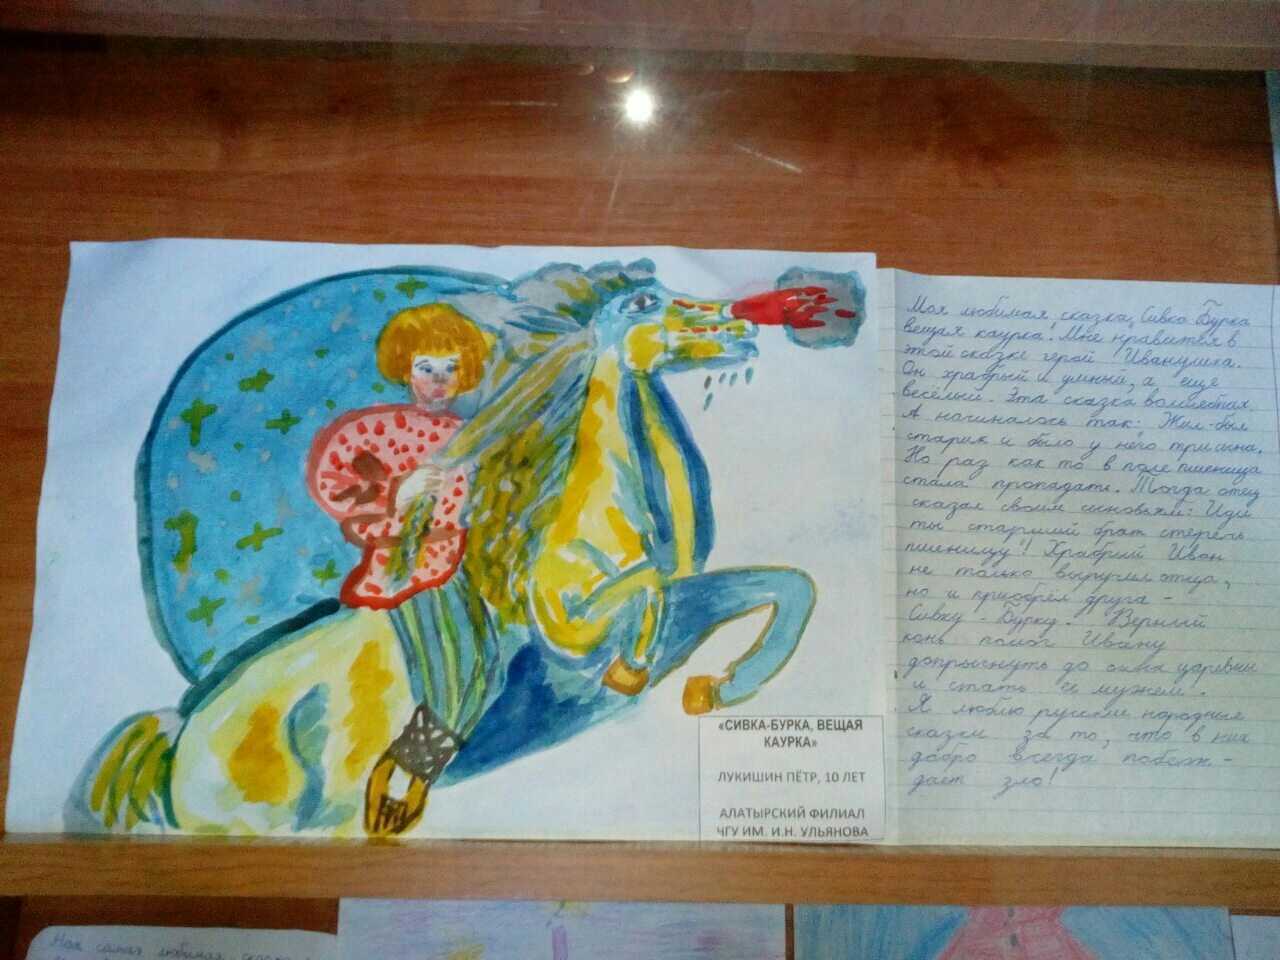 «СИВКА-БУРКА, ВЕЩАЯ
КАУРКА»
ЛУКИШИН ПЁТР, 10 ЛЕТ
АЛАТЫРСКИЙ ФИЛИАЛ
ЧГУ ИМ. И.Н. УЛЬЯНОВА
Моя любимая сказка „Сивка Бурка
вещая каурка! Мне нравится в
этой сказке герой Иванушка.
Он храбрый и умный, а ещё
весёлый. Эта сказка волшебная.
А начиналось так: Жил-был
старик и было у него три сына.
Но раз как то в поле пшеница
стала пропадать. Тогда отец
сказал своим сыновьям: Иди
ты старший брат стеречь
пшеницу! Храбрый Иван
не только выручил отца,
но и приобрёл друга -
Сивку - Бурку. Верный
конь помог Ивану
допрыгнуть до окна царевны
и стать её мужем.
Я люблю русские народные
сказки за то, что в них
добро всегда побеж-
дает зло!
самая любимая сказка